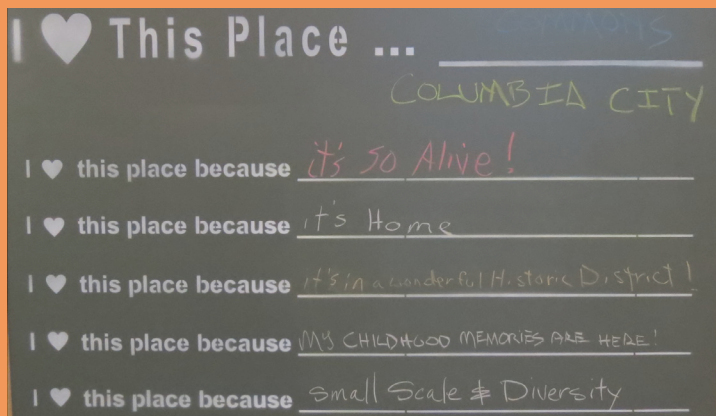 I ♥ This Place ...
COLUMBIA CITY
I ♥ this place because it's so Alive!
I ♥ this place because it's Home
I ♥ this place because it's in a wonderful Historic District!
I ♥ this place because MY CHILDHOOD MEMORIES ARE HERE!
I ♥ this place because small Scale & Diversity